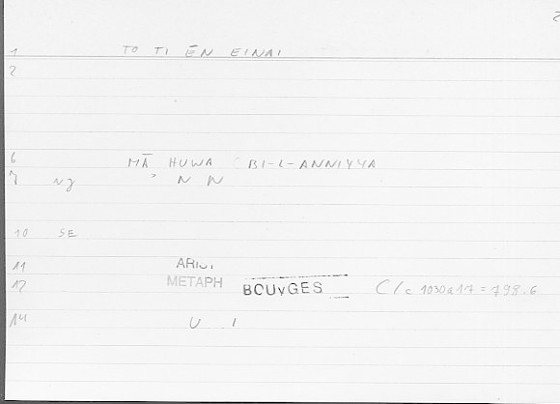 2
1 TO TI ĒN EINAI
2
6 MĀ HUWA BI-L-ANNIYYA
7 NJ ʾ N N
10 SE
11 ARIS.
12 METAPH BOUYGES C/c 1030a17 = 798.6
14 U I